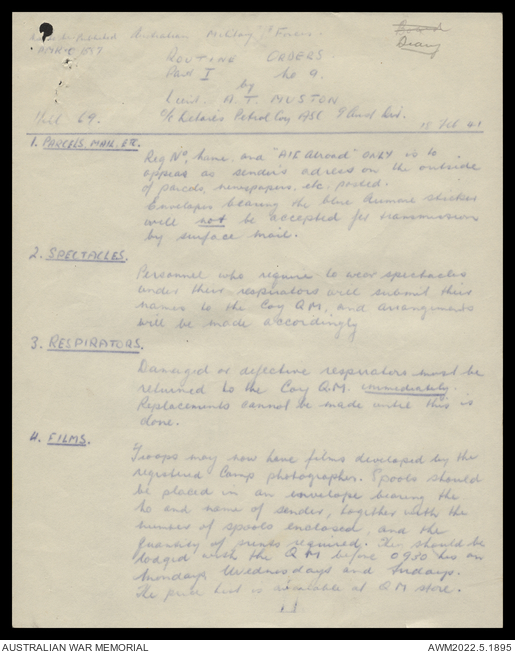 Australian Military Forces.
Diary
ROUTINE ORDERS
Part I No 9.
by
Lieut. A. T. MUSTON
69. O/C Details Petrol Coy ASC 9 Aust Div.
18 Feb 41
1. PARCELS, MAIL, ETC.
Reg No, name and "AIF Abroad" ONLY is to
appear as sender's adress on the outside
of parcels, newspapers, etc. posted.
Envelopes bearing the blue Airmail sticker
will not be accepted for transmission
by surface mail.
2. SPECTACLES.
Personnel who require to wear spectacles
under their respirators will submit their
names to the Coy QM, and arrangements
will be made accordingly
3. RESPIRATORS.
Damaged or defective respirators must be
returned to the Coy QM. immediately.
Replacements cannot be made until this is
done.
4. FILMS.
Troops may now have films developed by the
registered Camp photographer. Spools should
be placed in an envelope bearing the
No and name of sender, together with the
number of spools enclosed, and the
quantity of prints required. should be
lodged with the QM before 0930 hrs on
Mondays Wednesdays and Fridays.
The price list is available at QM store.
AUSTRALIAN WAR MEMORIAL
AWM2022.5.1895